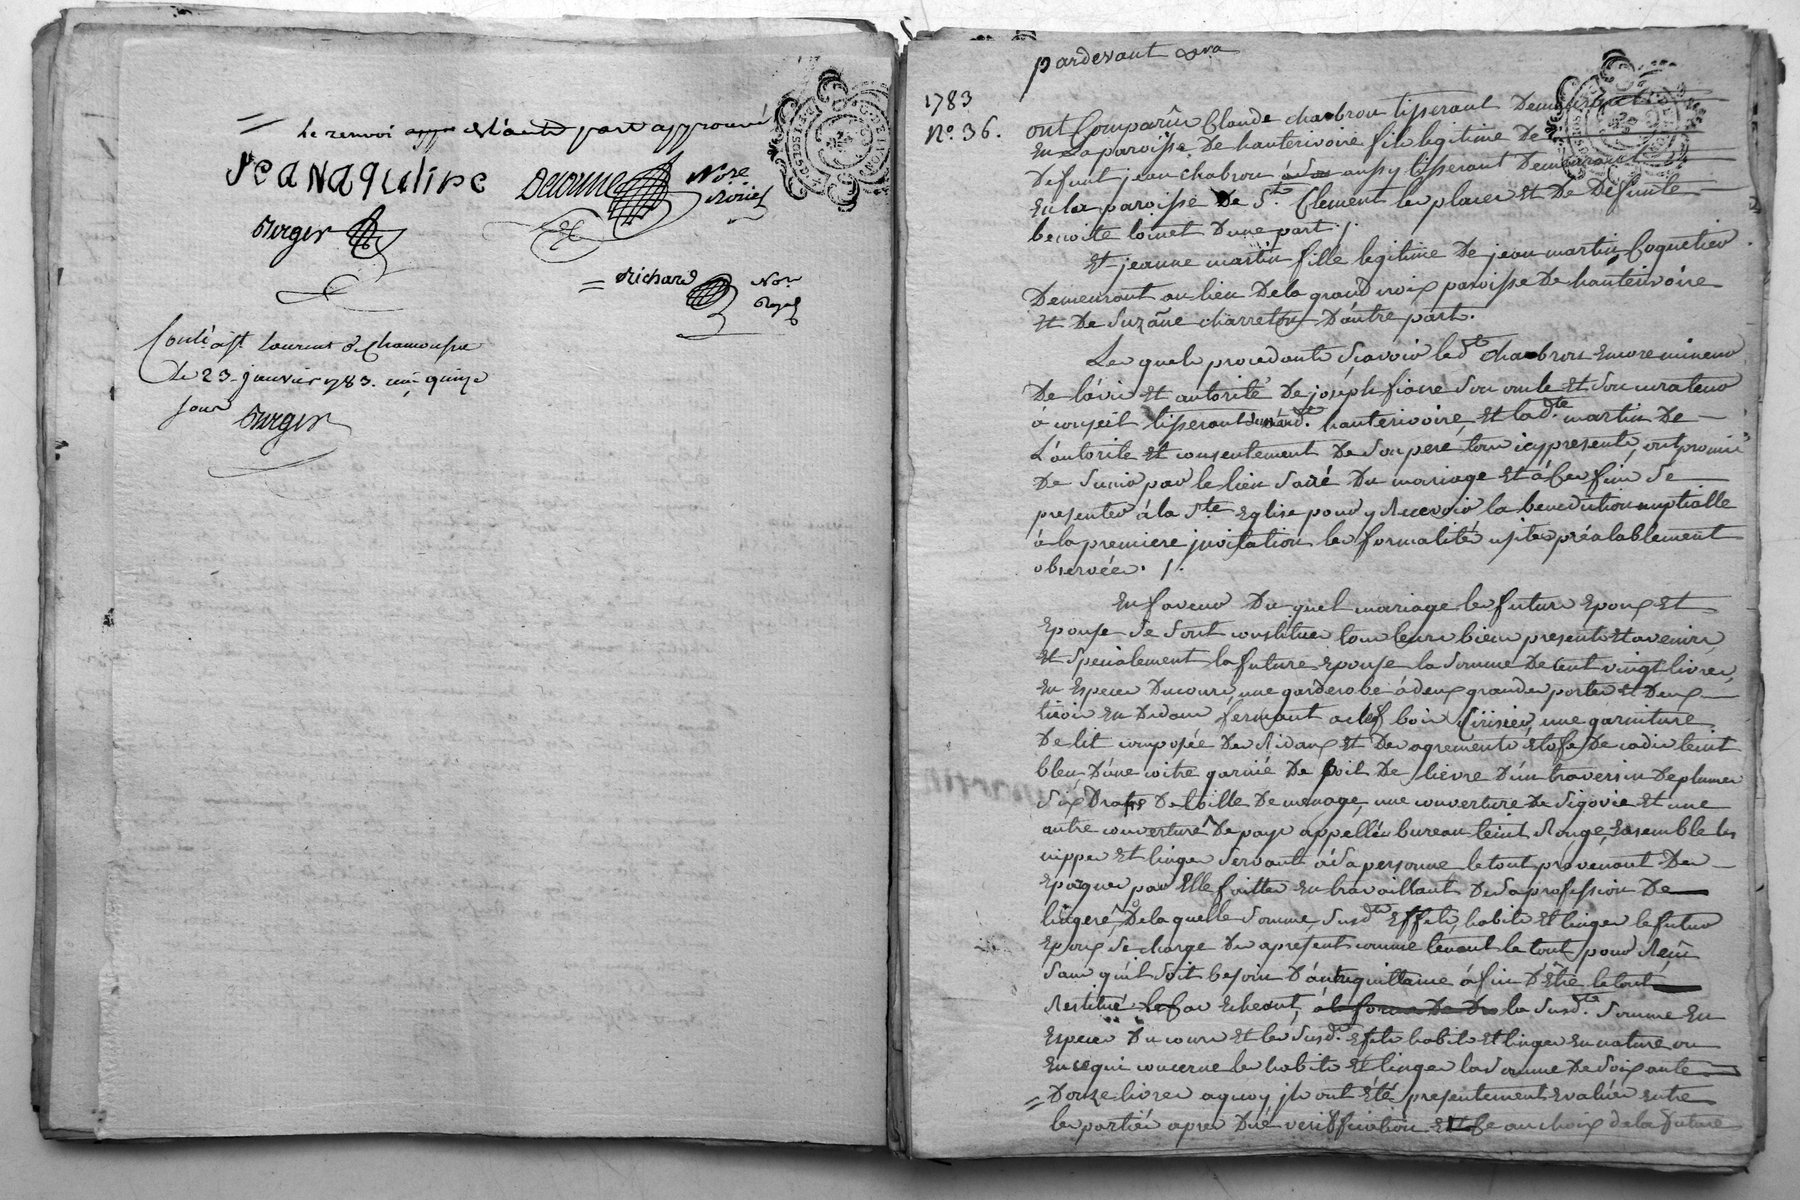 Le renvoi de l'autre part approuvé
JeaNaqulire
Delorme Nore Roïiel
Burger
= Richard Nore Royal
Contlé a St Laurent d Chamousset
Le 23 janvier 1783. reçu quinze
sous Burger
pardevant &ra
1783
No. 36.
ont Comparû Claude chabrou tisserant Demeurant
En La paroisse De hauterivoire fils legitime De
Defunt jean chabrou aussy tisserant Demeurant
En la paroisse De St. Clement les places et De Defunte
benoite Coinet D'une part ./.
Et jeanne martin fille legitime De jean martin Coquetier
Demeurant au lieu De la grand croix paroisse De hauterivoire
et De Suzâne charreton D'autre part.
Les quels procedants Scavoir le dt chabrou encore mineur
De l'avis et autorité De joseph fiasre Son oncle et Son curateur
à conseil tisserant dud. hauterivoire, et lad.te martin De
L'autorité et consentement De Son pere tous icy presents, ont promis
De S'unir par le lien Sacré Du mariage et à Ces fins Se
presenter à la Ste Eglise pour y Recevoir la benediction nuptialle
à la premiere jnvitation les formalités usitées préalablement
observées. /.
En faveur Du quel mariage les futurs Epoux et
Epouse Se Sont constitués tous leurs biens presents et avenirs
et Specialement la future epouse la Somme De Cent vingt livres
en Especes Du cours, une garderobe à deux grandes portes et Deux
tiroirs en Dedans fermant a clef bois Cerisier, une garniture
De lit composée De Ridaux et De agrements étofe De cadis teint
bleu, D'une coitre garnie De poil De lievre D'un traversin De plumes
Six Draps De toille De menage, une couverture De Sigovie et une
autre couverture De pays appellée bureau teint Rouge, Ensemble les
nippes et linges Servants à Sa personne le tout provenant Des
Epargnes par Elle faittes En travaillant De Sa profession De
lingere, De la quelle Somme, Susdts Effets, habits et linges le futur
Epoux Se charge Des apresent comme tenant le tout pour Reçû
Sans qu'il Soit besoin D'autre quittance à fin D'Etre le tout
Restitué le Cas Echeant, à la forme De Dr la Susd.te Somme En
Especes Du cours et les Susd. Effets habits et linges En nature ou
En ce qui concerne les habits et linges la Somme De Soixante
= Douze livres a quoy jls ont Eté presentement Evalués entre
les parties apres Dué veriffication et Ce au choix de la future